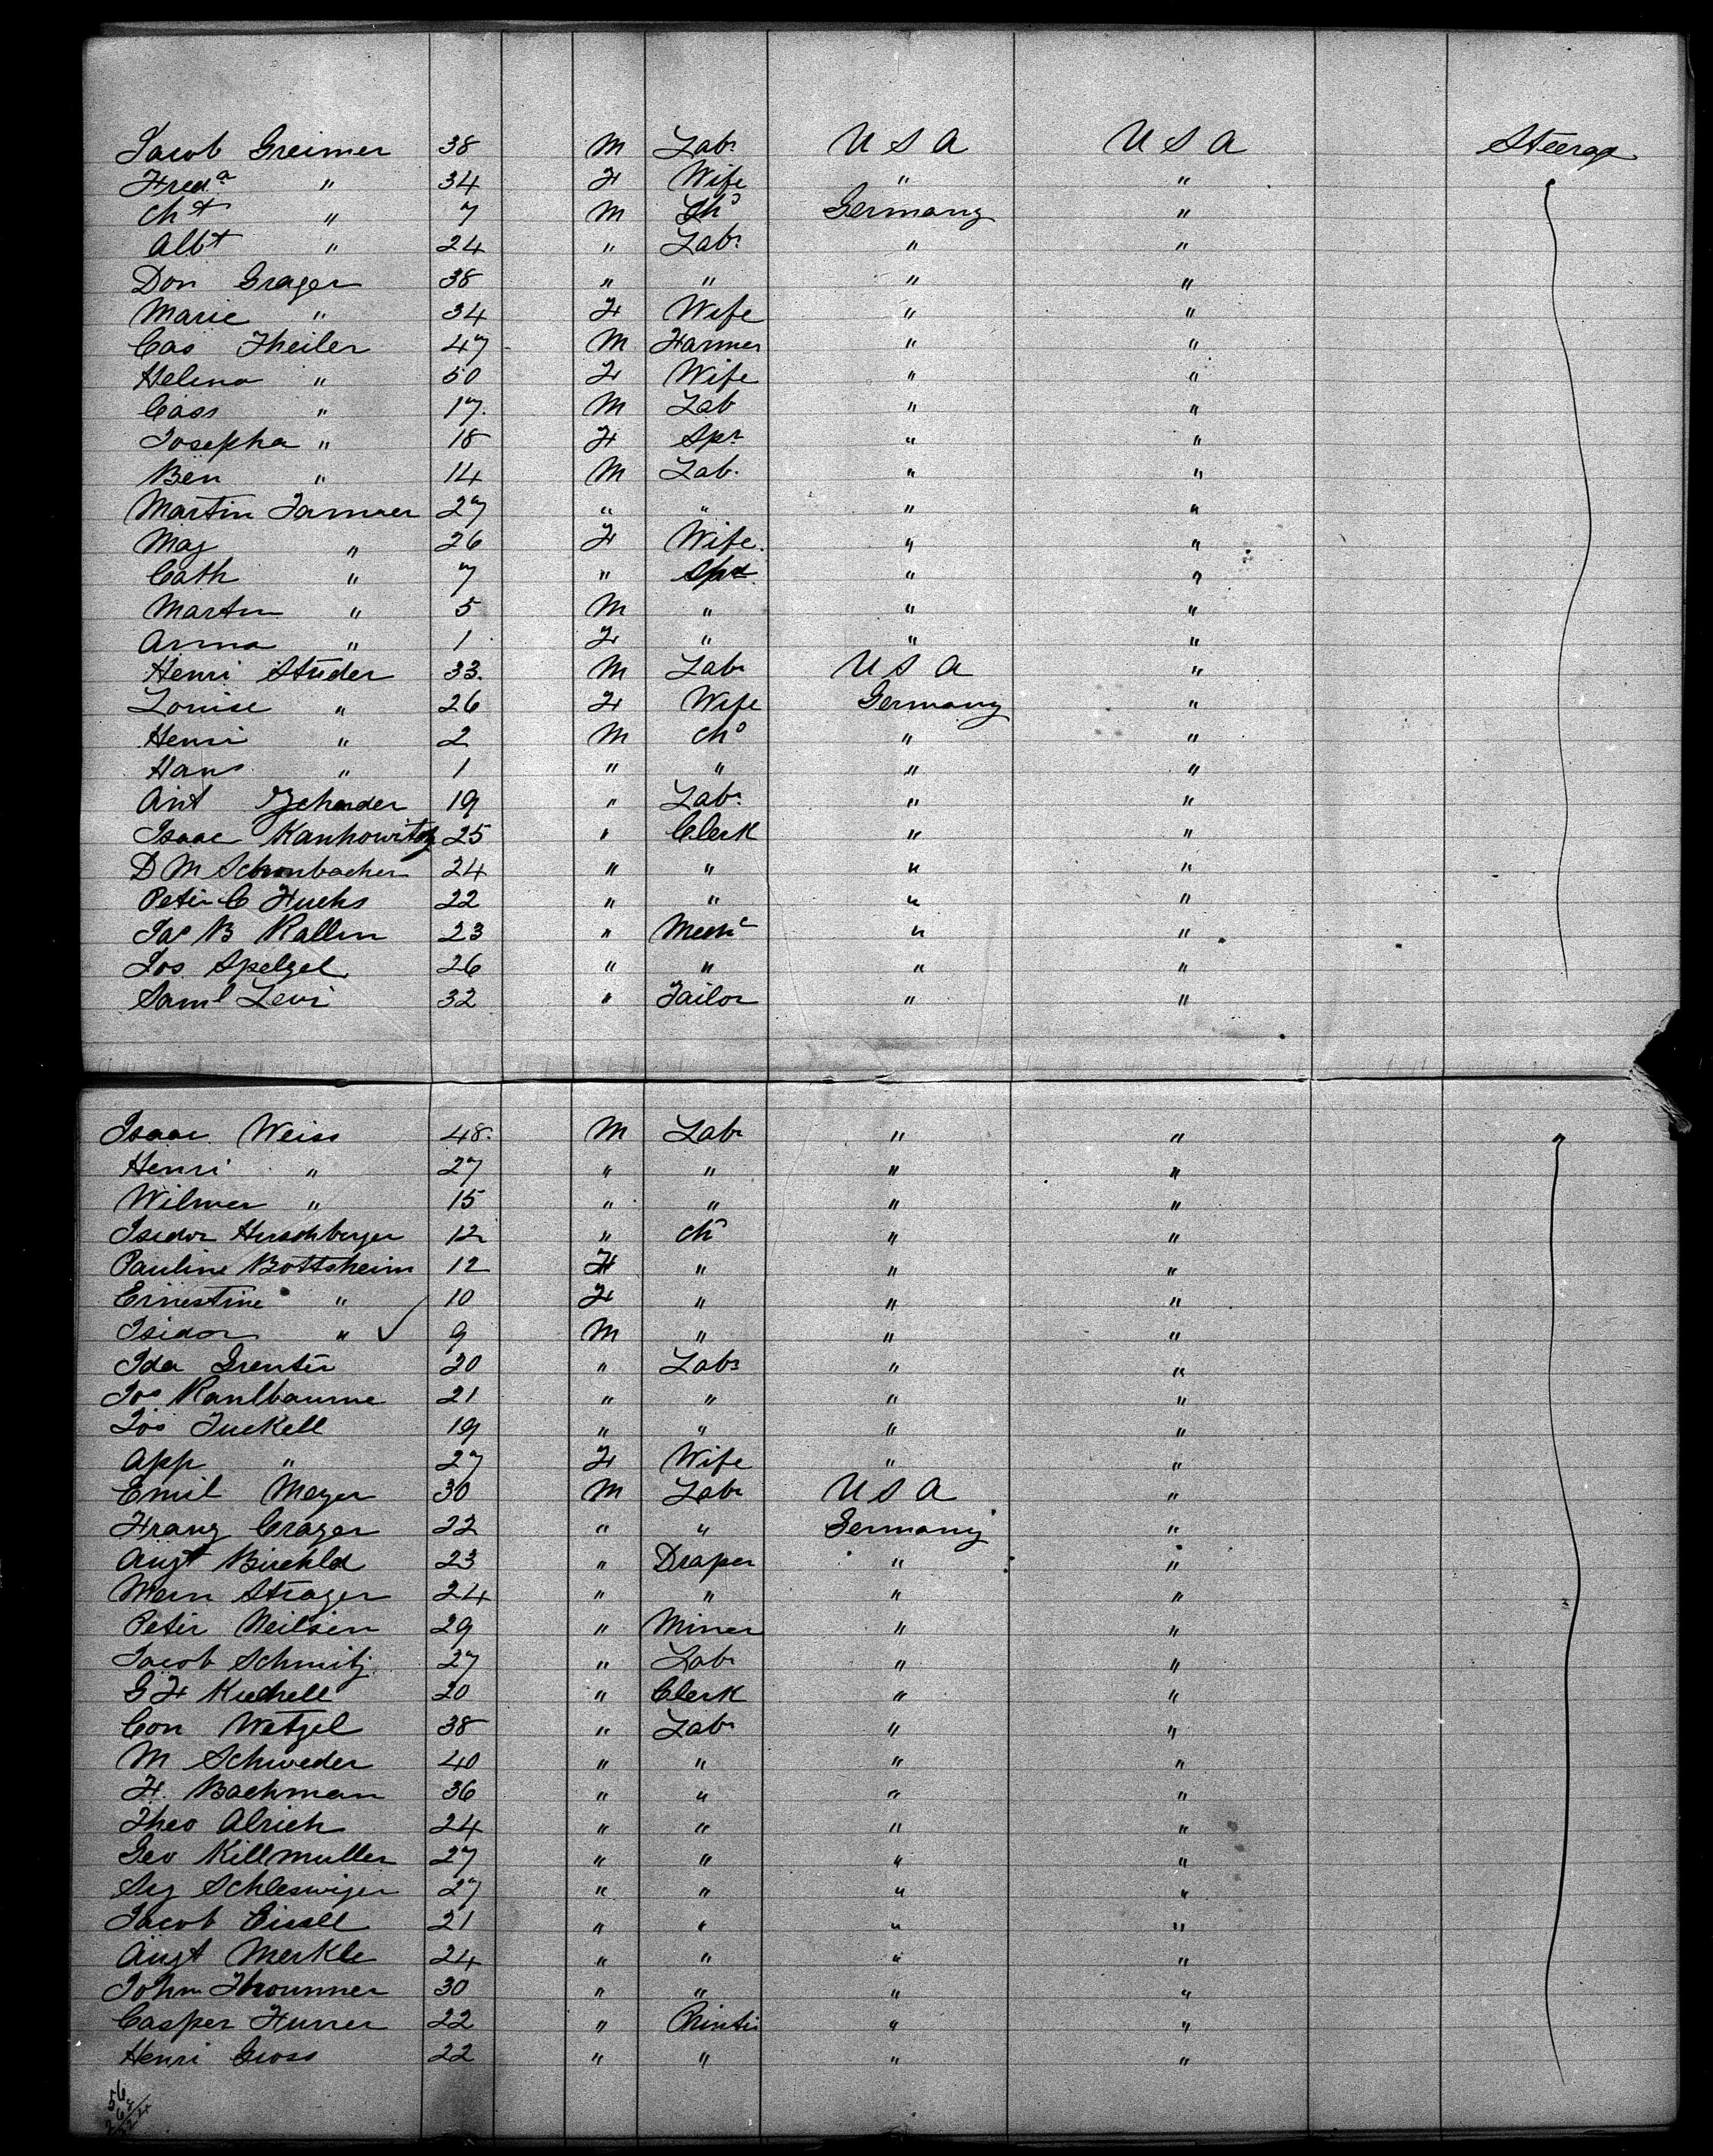 Jacob Greimer 38 M Labr U S A U S A Steerage
Freda " 34 F Wife " "
Cht " 7 M Chd Germany "
Albt " 24 " Labr " "
Don Grager 38 " " " "
Marie " 34 F Wife " "
Cas Theiler 47 M Farmer " "
Helena " 50 F Wife " "
Cass " 17 M Lab " "
Josepha " 18 F Spr " "
Ben " 14 M Lab. " "
Martin 27 " " " "
Mag " 26 F Wife. " "
Cath " 7 " " "
Martin " 5 M " " "
Anna " 1 F " " "
Henri Studer 33. M Labr U S A "
Louise " 26 F Wife Germany "
Henri " 2 M Chd " "
Hans " 1 " " " "
Ant 19 " Labr " "
Isaac Kanhowitz 25 " Clerk " "
D M Schonbacher 24 " " " "
Peter C Fuchs 22 " " " "
Jac B Kallen 23 " Mechc " "
Jos Spelzel 26 " " " "
Saml Levi 32 " Tailor " "
Isaac Weiss 48. M Labr " "
Henri " 27 " " " "
Wilmer " 15 " " " "
Isidor Hirschberger 12 " Ch " "
Pauline Bottsheim 12 F " " "
Ernestine " 10 F " " "
Isidor " ✓ 9 M " " "
Ida 20 " Labr " "
Jos Kanlbaume 21 " " " "
Jos Tuckell 19 " " " "
App " 27 F Wife " "
Emil Meyer 30 M Labr U S A "
Franz Crager 22 " " Germany "
Augt Birchld 23 " Draper " "
Wern Strager 24 " " " "
Peter Neilsen 29 " Miner " "
Jacob Schmitz 27 " Labr " "
G F Kuchell 20 " Clerk " "
Con Wetzel 38 " Labr " "
M Schweder 40 " " " "
F. Bachman 36 " " " "
Theo Alrich 24 " " " "
Geo Killmuller 27 " " " "
Sig Schleswiger 27 " " " "
Jacob Eissel 21 " " " "
Augt Merkle 24 " " " "
John 30 " " " "
Casper Furrer 22 " Printer " "
Henri Gross 22 " " " "
56